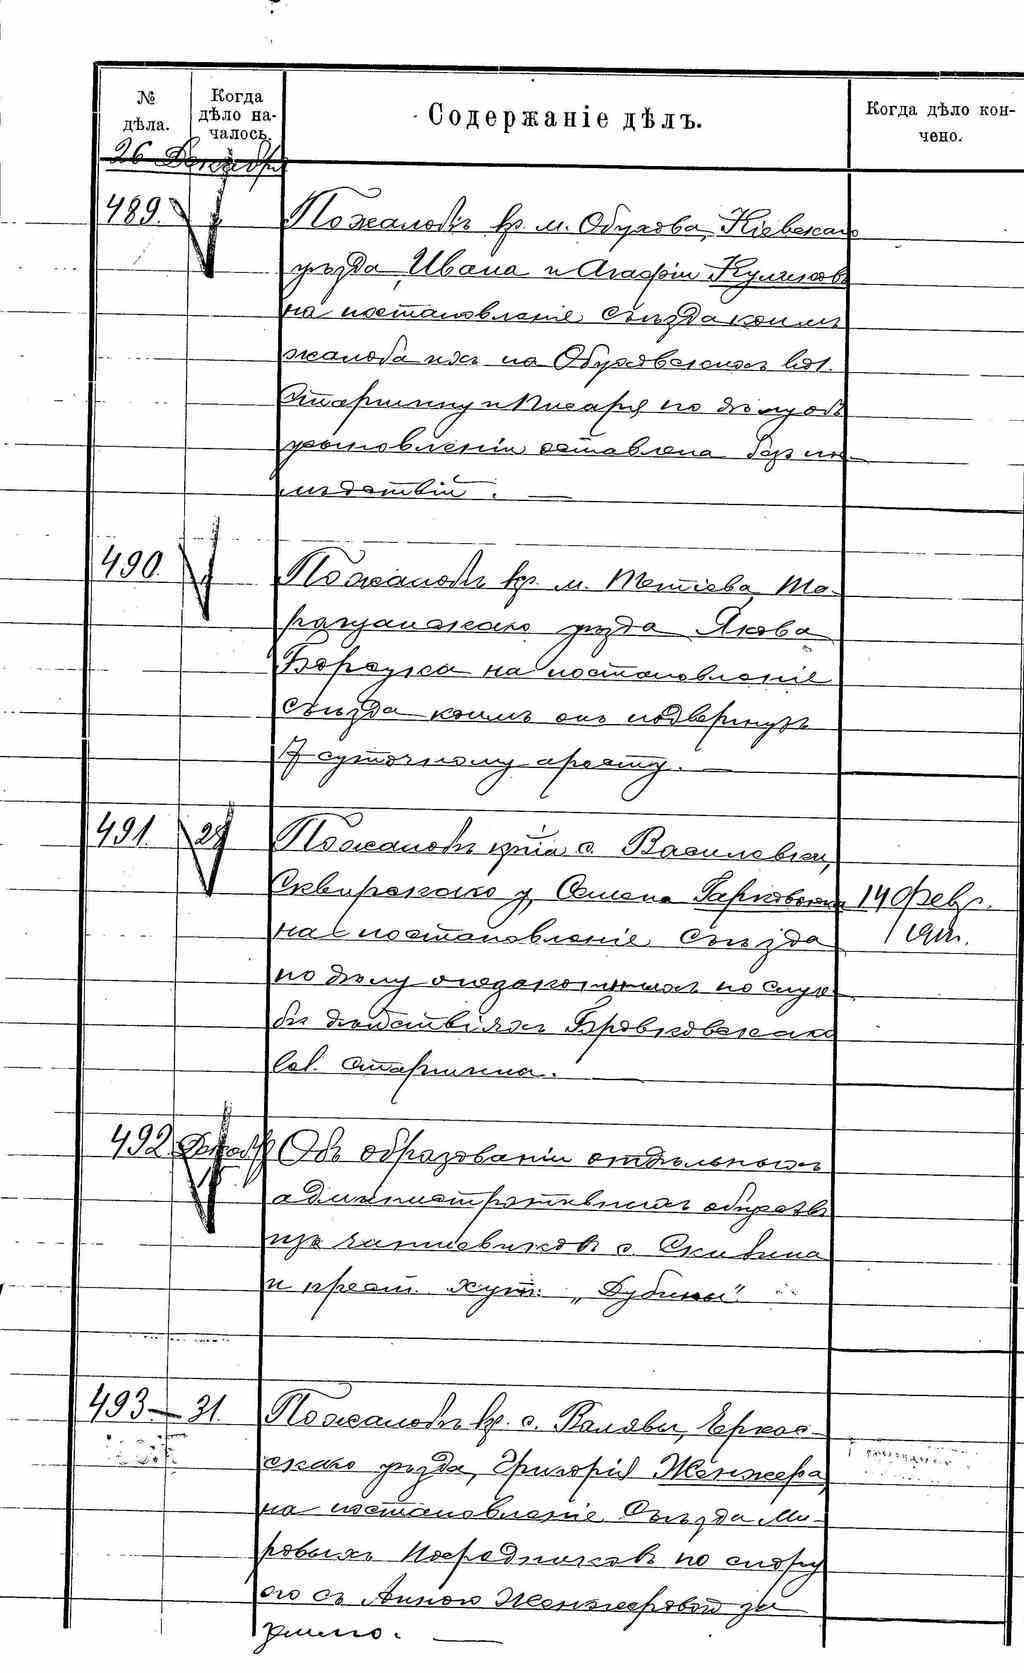 № дѣла.
Когда дѣло началось.
Содержаніе дѣлъ.
Когда дѣло кончено.
26 Декабря
489. По жалобѣ кр. м. Обухова, Кіевскаго
уѣзда, Ивана и Агафіи Куликовъ
на постановленіе съѣзда коимъ
жалоба ихъ на Обуховскихъ вол.
Старшину и Писаря по дѣлу объ
усыновленіи оставлена безъ по-
слѣдствій. —
490. По жалобѣ кр. м. Тетіева, Та-
ращанскаго уѣзда Якова
на постановленіе
съѣзда коимъ онъ подвергнутъ
7 суточному аресту. —
491. 28 По жалобѣ кр-на с. Василевки,
Сквирскаго у. Семена
14 февр.
на постановленіе съѣзда
191
по дѣлу о незаконныхъ по служ-
бѣ дѣйствіяхъ Бровковскаго
вол. старшины. —
492. Декабр. 15. Объ образованіи отдѣльныхъ
административныхъ обществъ
изъ чиншевиковъ с. Сквина
и крест. хут. „Дубины"
493 — 31. По жалобѣ кр. с. Валявы, Черкас-
скаго уѣзда, Григорія Женжера,
на постановленіе Съѣзда Ми-
ровыхъ Посредниковъ по спору
его съ Анною Женжеровой за
землю. —